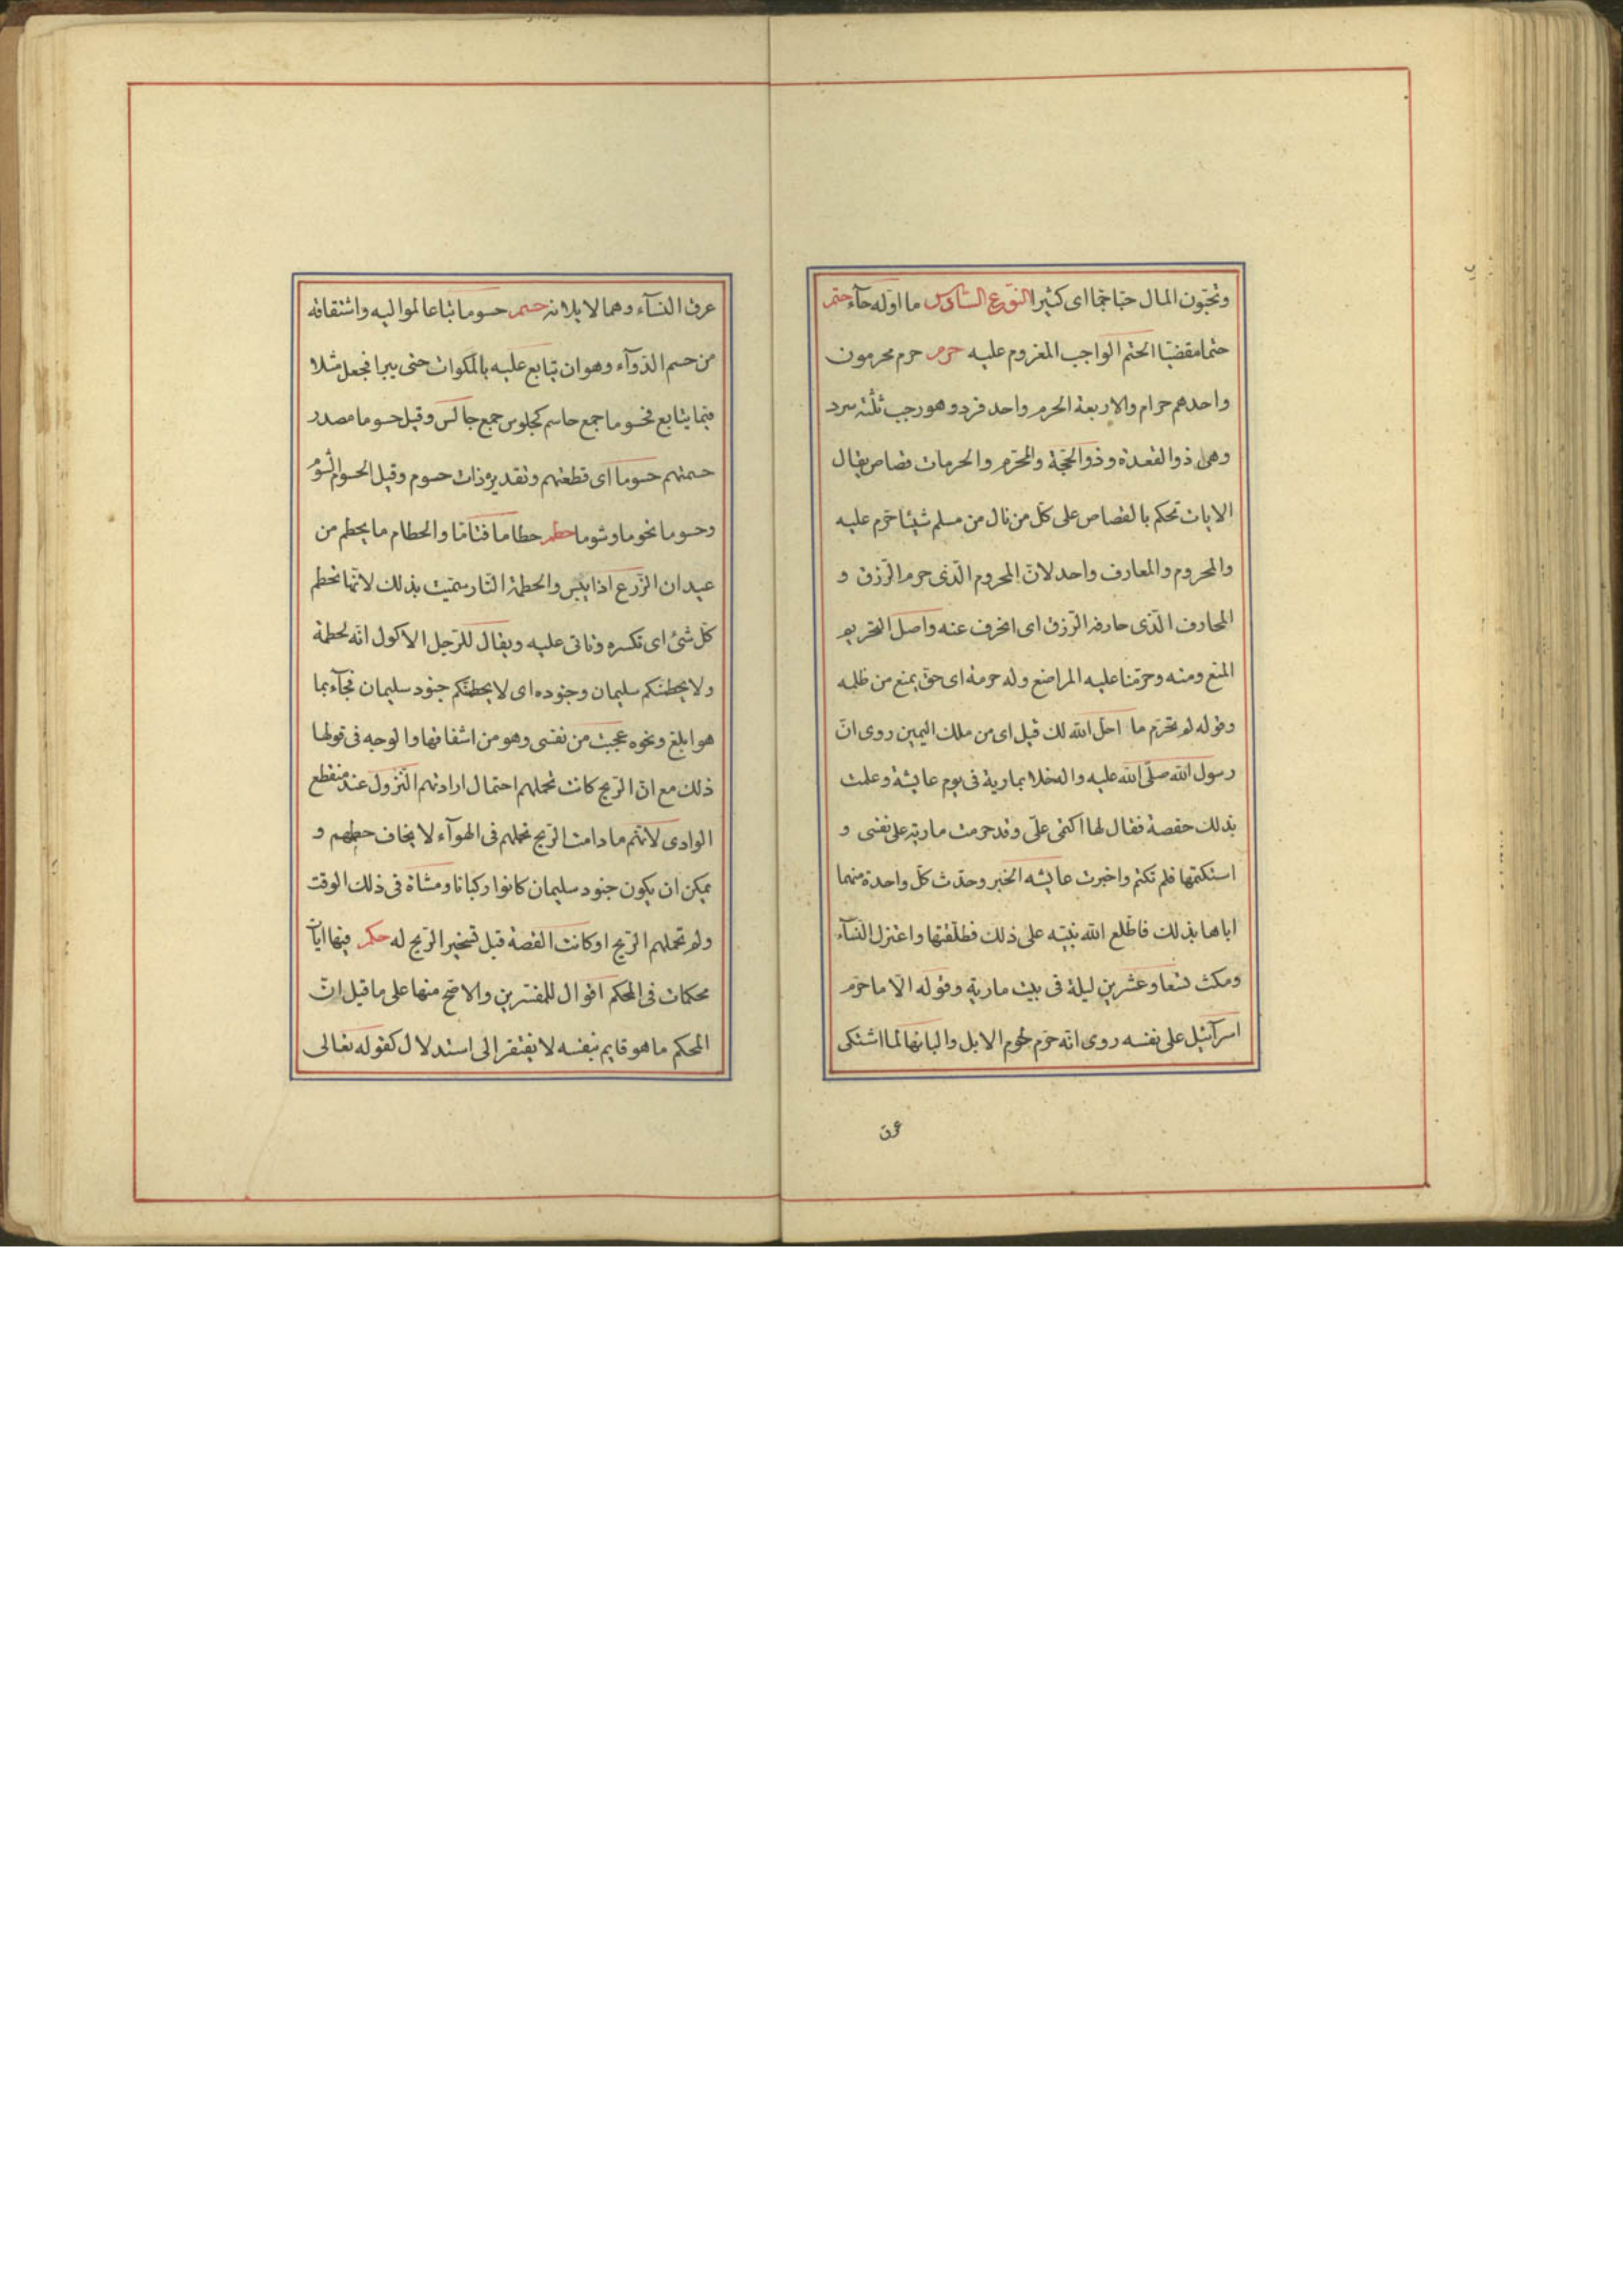 وتحبّون المال حبّا جمّا اى كثيرا النّوع السّادس ما اوّله حآء حتم
حتما مقضيّا الحتم الواجب المغروم عليه حرم حرم محرمون
واحدهم حرام والاربعة الحرم واحد فرد وهو رجب ثلثة سرد
وهى ذو القعدة وذو الحجّة والمحرّم والحرمات قصاص يقال
الايات تحكم بالقصاص على كلّ من نال من مسلم شيئا حرّم عليه
والمحروم والمعارف واحد لانّ المحروم الّذى حرم الرّزق و
المحارف الّذى حارفه الرّزق اى انحرف عنه واصل التحريم
المنع ومنه وحرّمنا عليه المراضع وله حرمة اى حقّ يمنع من ظلمه
وقوله لم تحرّم ما احلّ الله لك قيل اى من ملك اليمين روى انّ
رسول الله صلّى الله عليه واله خلا بمارية فى يوم عايشة وعلمت
بذلك حفصة فقال لها اكتمى علىّ وقد حرمت مارية على نفسى و
استكتمها فلم تكتم واخبرت عايشه الخبر وحدّث كلّ واحدة منهما
اباها بذلك فاطّلع الله نبيّه على ذلك فطلّقها واعتزل النّسآء
ومكث تسعا وعشرين ليلة فى بيت مارية وقوله الّا ما حرّم
اسرآئيل على نفسه روى انّه حرّم لحوم الابل والبانها لمّا اشتكى
عرق
عرق النسآء وهما لا يلانه حسم حسوما تباعا لمواليه واشتقاقه
من حسم الدّوآء وهو ان يتابع عليه بالمكوات حتى يبرا فجعل مثلا
فيما يتابع فحسوما جمع حاسم كجلوس جمع جالس وقيل حسوما مصدر
حسمتهم حسوما اى قطعتهم وتقديره ذات حسوم وقيل الحسوم الشؤم
وحسوما نحوما وشوما حطم حطاما فتاتا والحطام ما يحطم من
عيدان الزّرع اذا يبس والحطمة النّار سمّيت بذلك لانّها تحطم
كلّ شئ اى تكسره وتاتى عليه ويقال للرّجل الاكول انّه لحطمة
ولا يحطمنّكم سليمان وجنوده اى لا يحطمنّكم جنود سليمان فجآء بما
هو ابلغ ونحوه عجبت من نفسى وهو من اشفاقها والوجه فى قولها
ذلك مع انّ الرّيح كانت تحملهم احتمال ارادتهم النّزول عند منقطع
الوادى لانّهم ما دامت الرّيح تحملهم فى الهوآء لا يخاف حطمهم و
يمكن ان يكون جنود سليمان كانوا ركبانا ومشاة فى ذلك الوقت
ولم تحملهم الرّيح او كانت القصة قبل تسخير الرّيح له حكم فيها ايات
محكمات فى المحكم اقوال للمفسّرين والاصحّ منها على ما قيل انّ
المحكم ما هو قايم بنفسه لا يفتقر الى استدلال كقوله تعالى